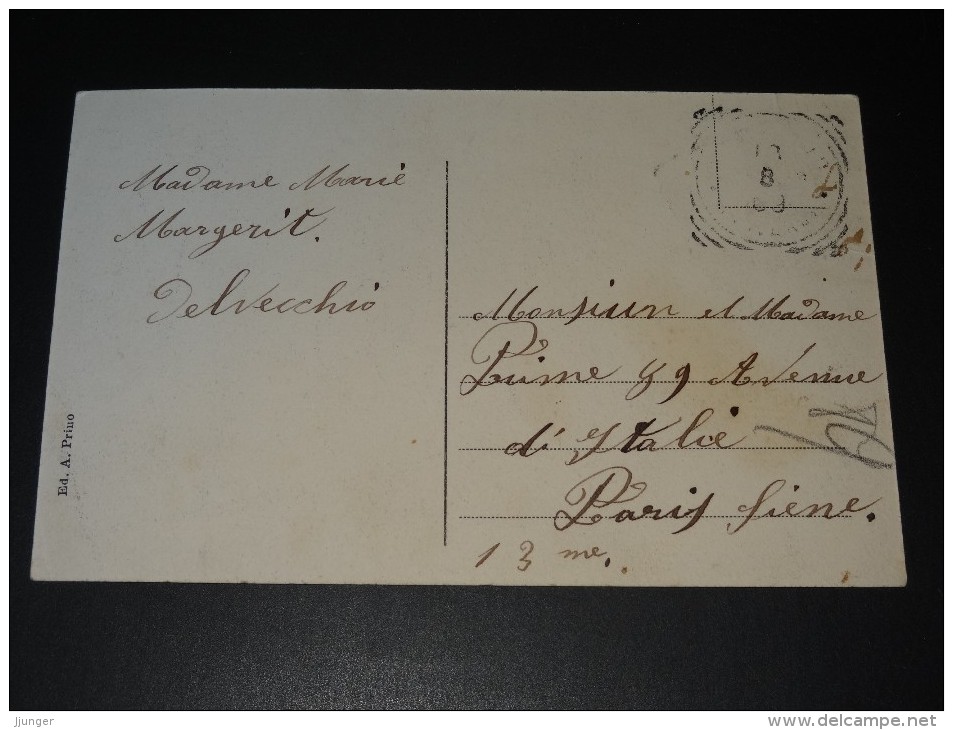 Madame Marie
Margerit.
Delvecchio
Ed. A. Prino
8
Monsiun et Madame
Prime 89 Avenue
d' Italie
Paris Siene.
13 me.
jjunger
www.delcampe.net